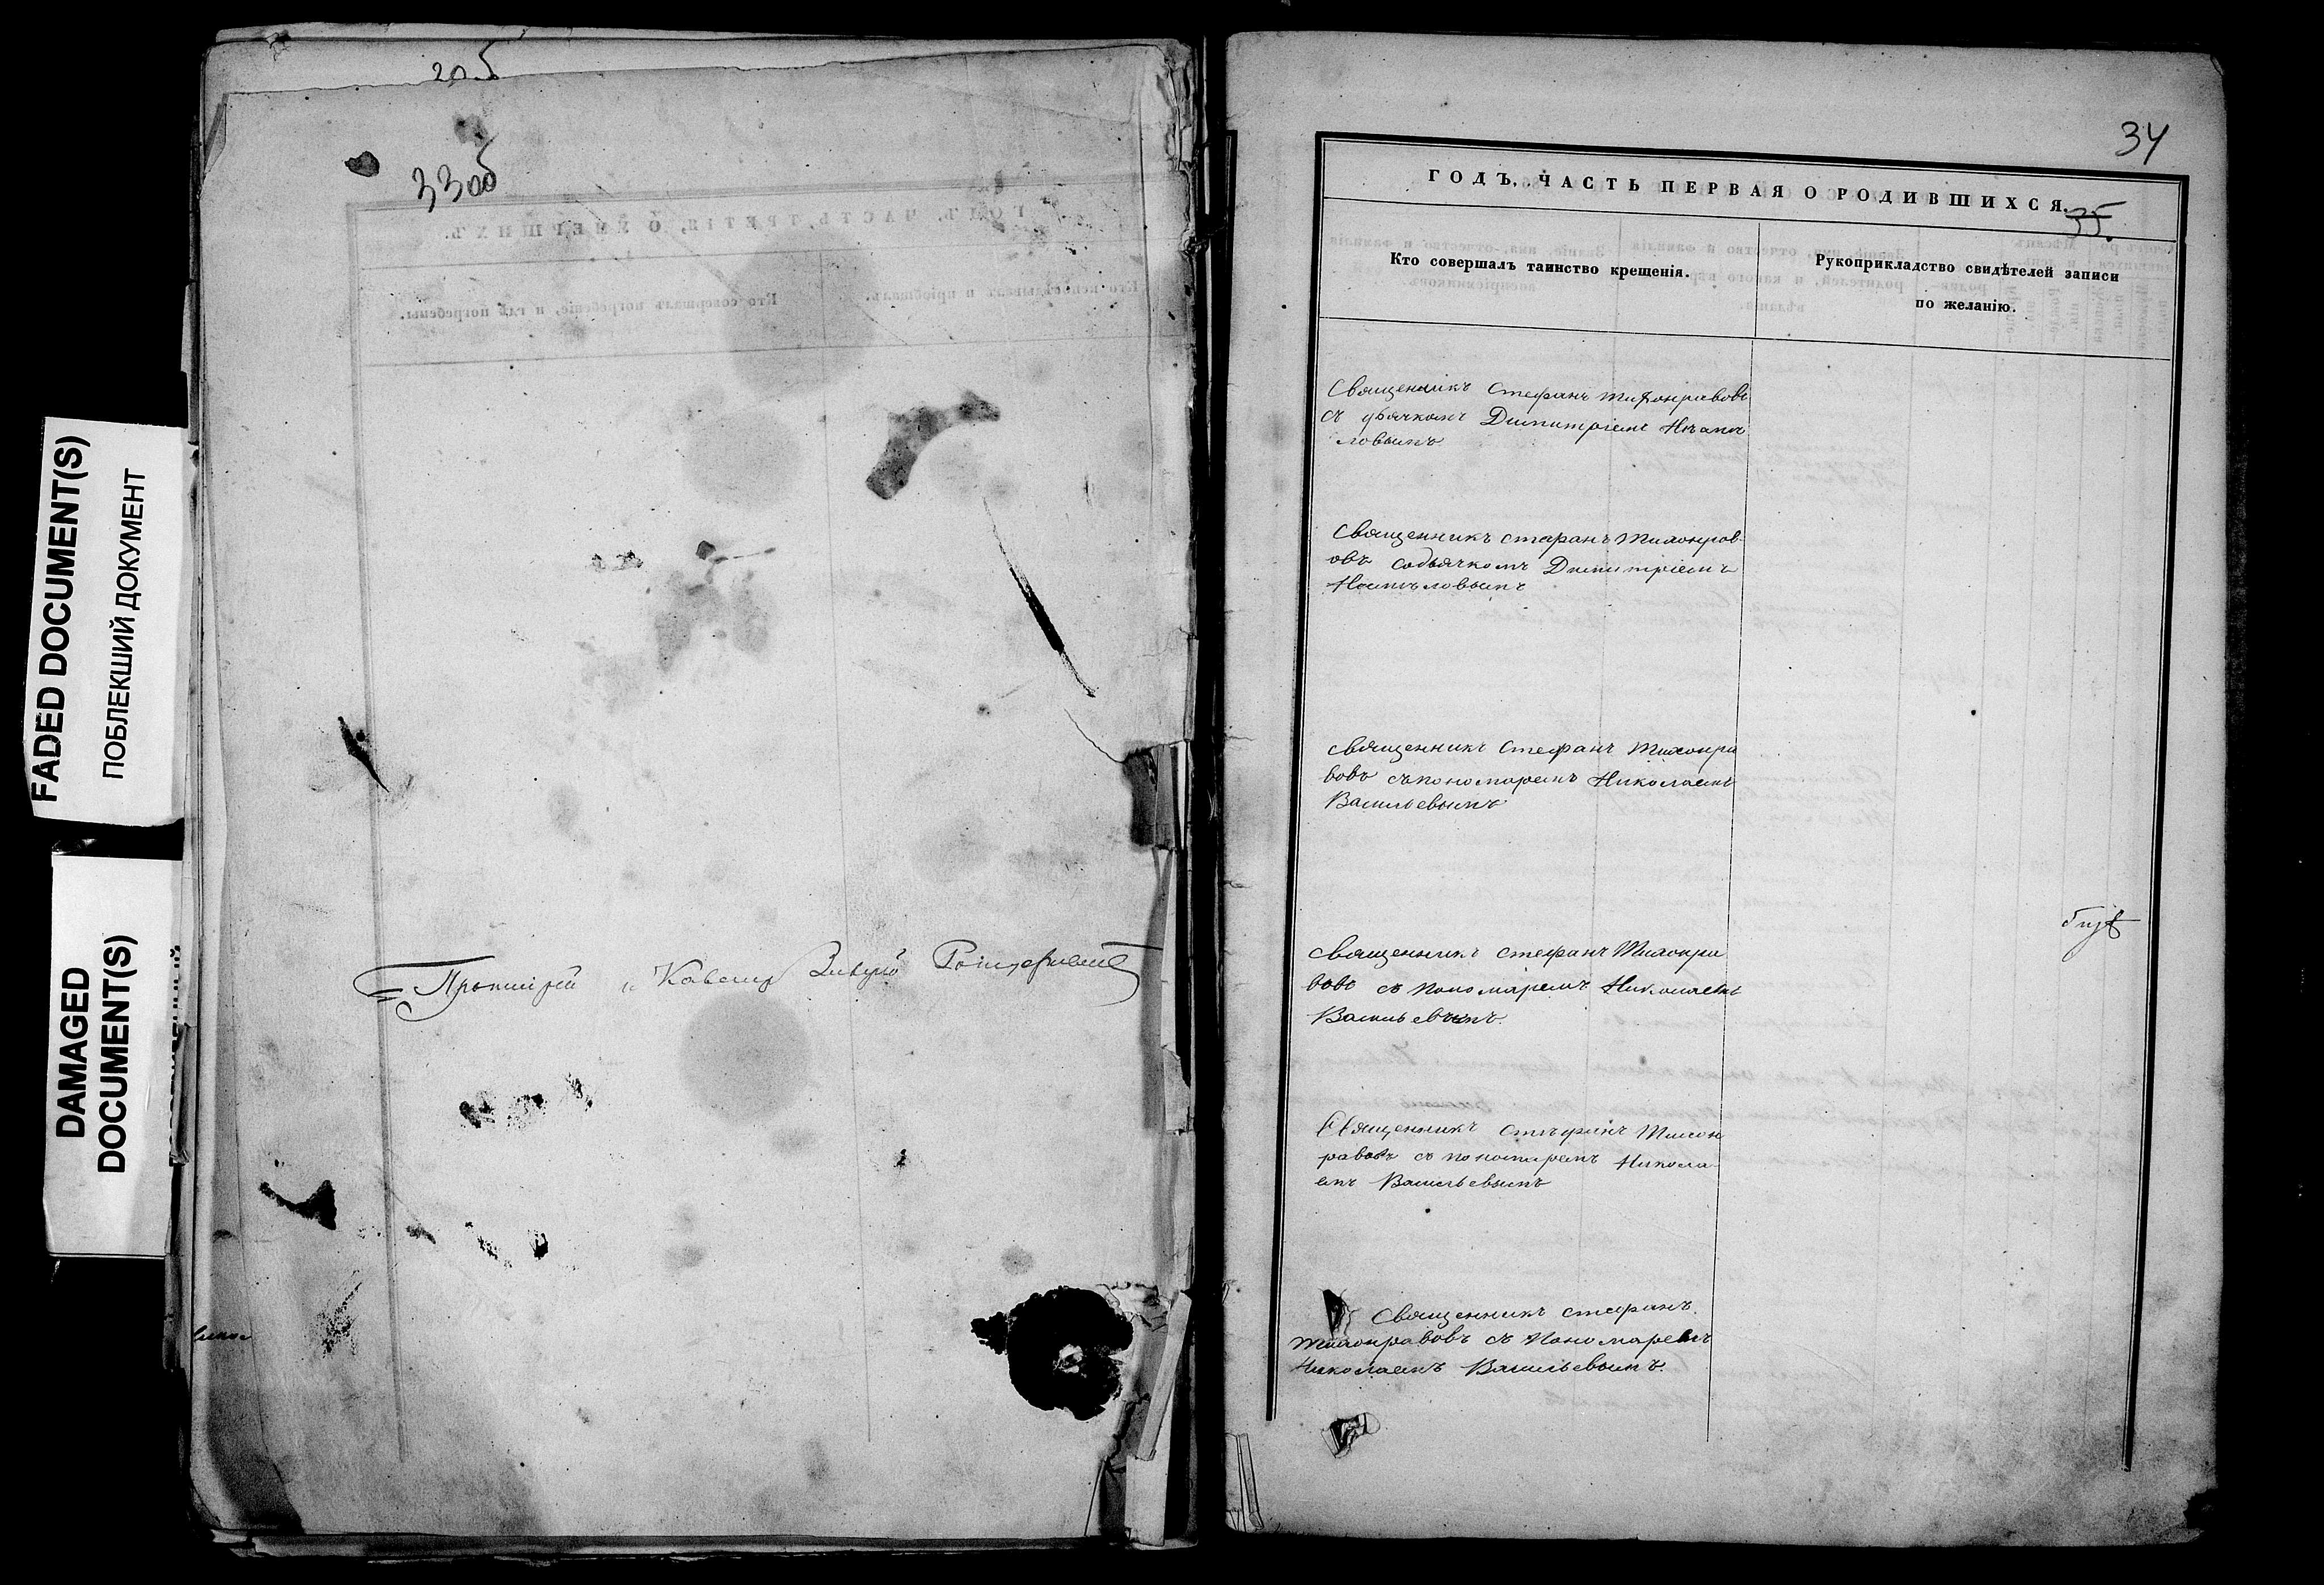 FADED DOCUMENT(S)
ПОБЛЕКШИЙ ДОКУМЕНТ
DAMAGED
DOCUMENT(S)
20об
33об
Протоіерей и Кавалер
34
ГОДЪ, ЧАСТЬ ПЕРВАЯ О РОДИВШИХСЯ.
35.
Кто совершалъ таинство крещенія.
Рукоприкладство свидѣтелей записи
по желанію.
Священникъ Стефанъ Тихонравовъ
съ дьячкомъ Димитріемъ
ловымъ
Священникъ Стефанъ Тихонрав-
овъ содьячкомъ Димитріемъ
Священникъ Стефанъ Тихонра
вовъ съпономаремъ Николаемъ
Васильевымъ
Священникъ Стефанъ Тихонра
вовъ съ пономаремъ Николаемъ
Васильевымъ.
Священникъ Стефанъ Тихон
равовъ съ пономаремъ Никола-
емъ Васильевымъ
Священникъ Стефанъ.
Тихонравовъ съ Пономаремъ
Николаемъ Васильевымъ.